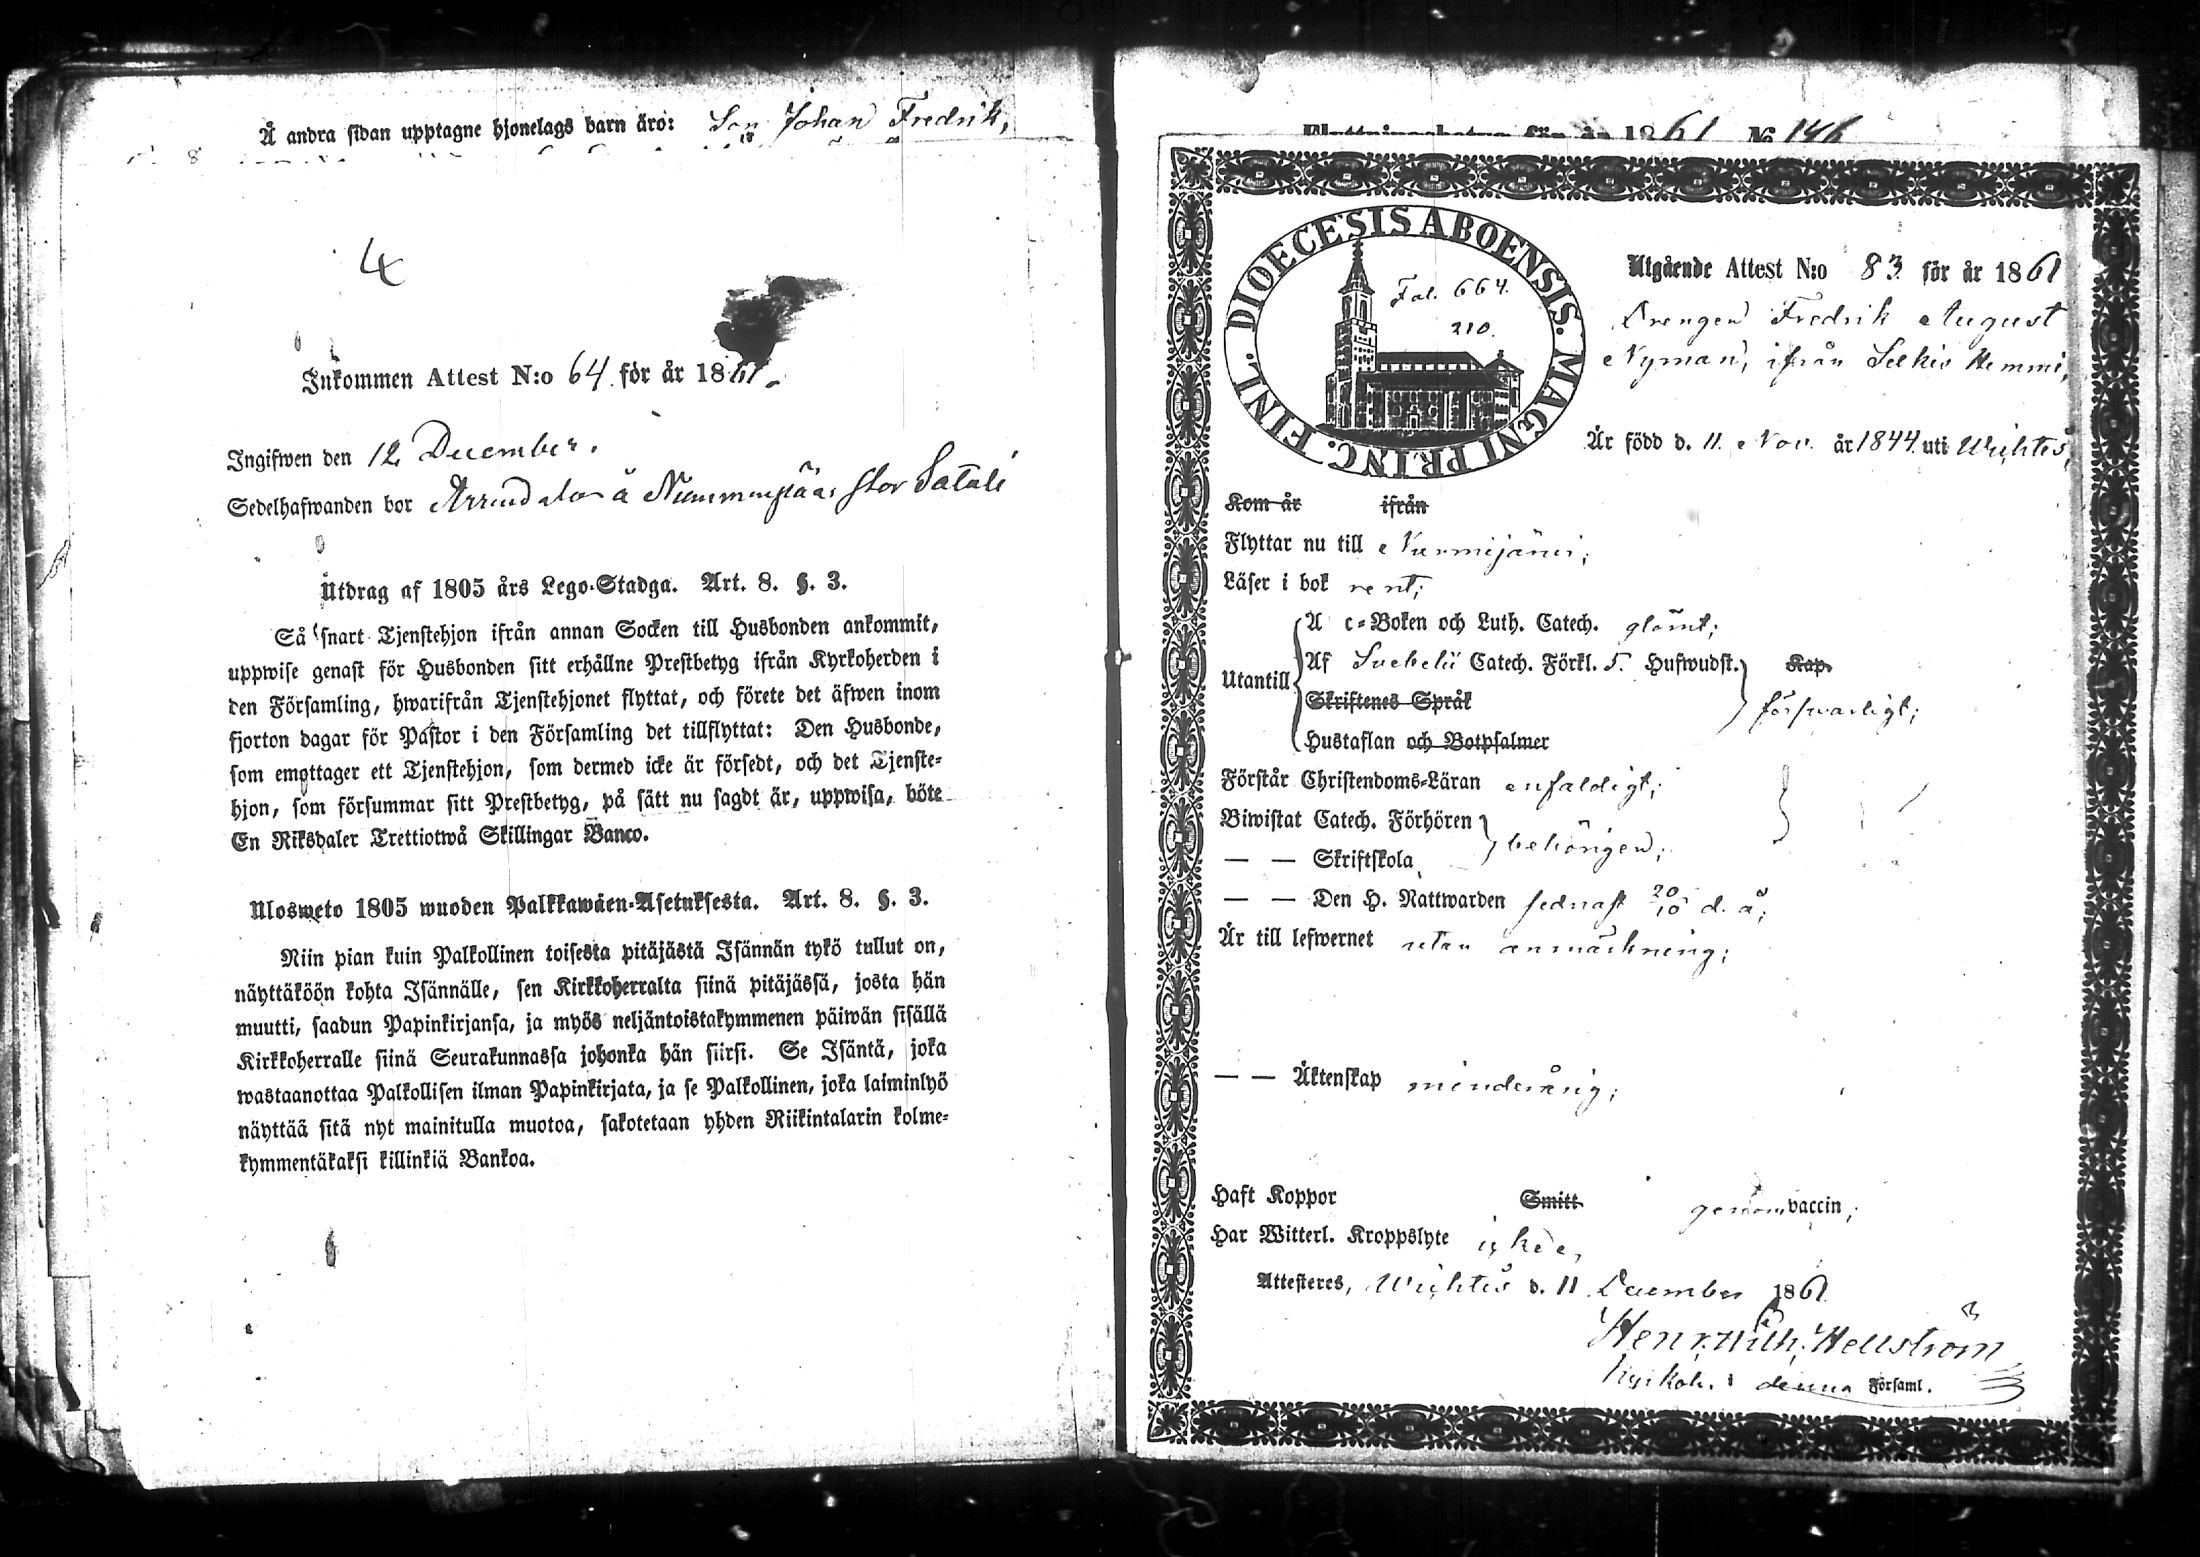 Å andra sidan upptagne hjonelags barn äro: Son Johan Fredrik,
4
Inkommen Attest N:o 64 för år 1861.
Ingifwen den 12 December.
Sedelhafwanden bor å Nummenpää Stor
Utdrag af 1805 års Lego-Stadga. Art. 8. §. 3.
Så snart Tjenstehjon ifrån annan Socken till Husbonden ankommit,
uppwise genast för Husbonden sitt erhållne Prestbetyg ifrån Kyrkoherden i
den Församling, hwarifrån Tjenstehjonet flyttat, och förete det äfwen inom
fjorton dagar för Pastor i den Församling det tillflyttat: Den Husbonde,
som emottager ett Tjenstehjon, som dermed icke är försedt, och det Tjenste-
hjon, som försummar sitt Prestbetyg, på sätt nu sagdt är, uppwisa, böte
En Riksdaler Trettiotwå Skillingar Banco.
Ulosweto 1805 wuoden Palkkawäen-Asetuksesta. Art. 8. §. 3.
Niin pian kuin Palkollinen toisesta pitäjästä Isännän tykö tullut on,
näyttäköön kohta Isännälle, sen Kirkkoherralta siinä pitäjässä, josta hän
muutti, saadun Papinkirjansa, ja myös neljäntoistakymmenen päiwän sisällä
Kirkkoherralle siinä Seurakunnassa johonka hän siirsi. Se Isäntä, joka
wastaanottaa Palkollisen ilman Papinkirjata, ja se Palkollinen, joka laiminlyö
näyttää sitä nyt mainitulla muotoa, sakotetaan yhden Riikintalarin kolme-
kymmentäkaksi killinkiä Bankoa.
Flyttningsbetyg för år 1861 No 146
DIOECESIS ABOENSIS. MAGNI PRINC. FINL.
Fol. 664.
210.
Utgående Attest N:o 83 för år 1861
Drengen Fredrik August
Nyman, ifrån Selkis Hemmi,
Är född d. 11. Nov. år 1844. uti Wichtis,
Kom år ifrån
Flyttar nu till Nurmijärvi;
Läser i bok rent;
Utantill
A c-Boken och Luth. Catech. glömt;
Af Svebelii Catech. Förkl. 5. Hufwudst. Kap.
Skriftenes Språk
försvarligt;
Hustaflan och Botpsalmer
Förstår Christendoms-Läran enfaldigt;
Biwistat Catech. Förhören
— — Skriftskola
behörigen;
— — Den H. Nattwarden sednast 20/10 d. å;
Är till lefwernet utan anmärkning;
— — Äktenskap minderårig;
Haft Koppor Smitt genom vaccin;
Har Witterl. Kroppslyte icke,
Attesteras, Wichtis d. 11 December 1861
Henr. Wilh. Hellström
Kyrkoh. i denna Församl.